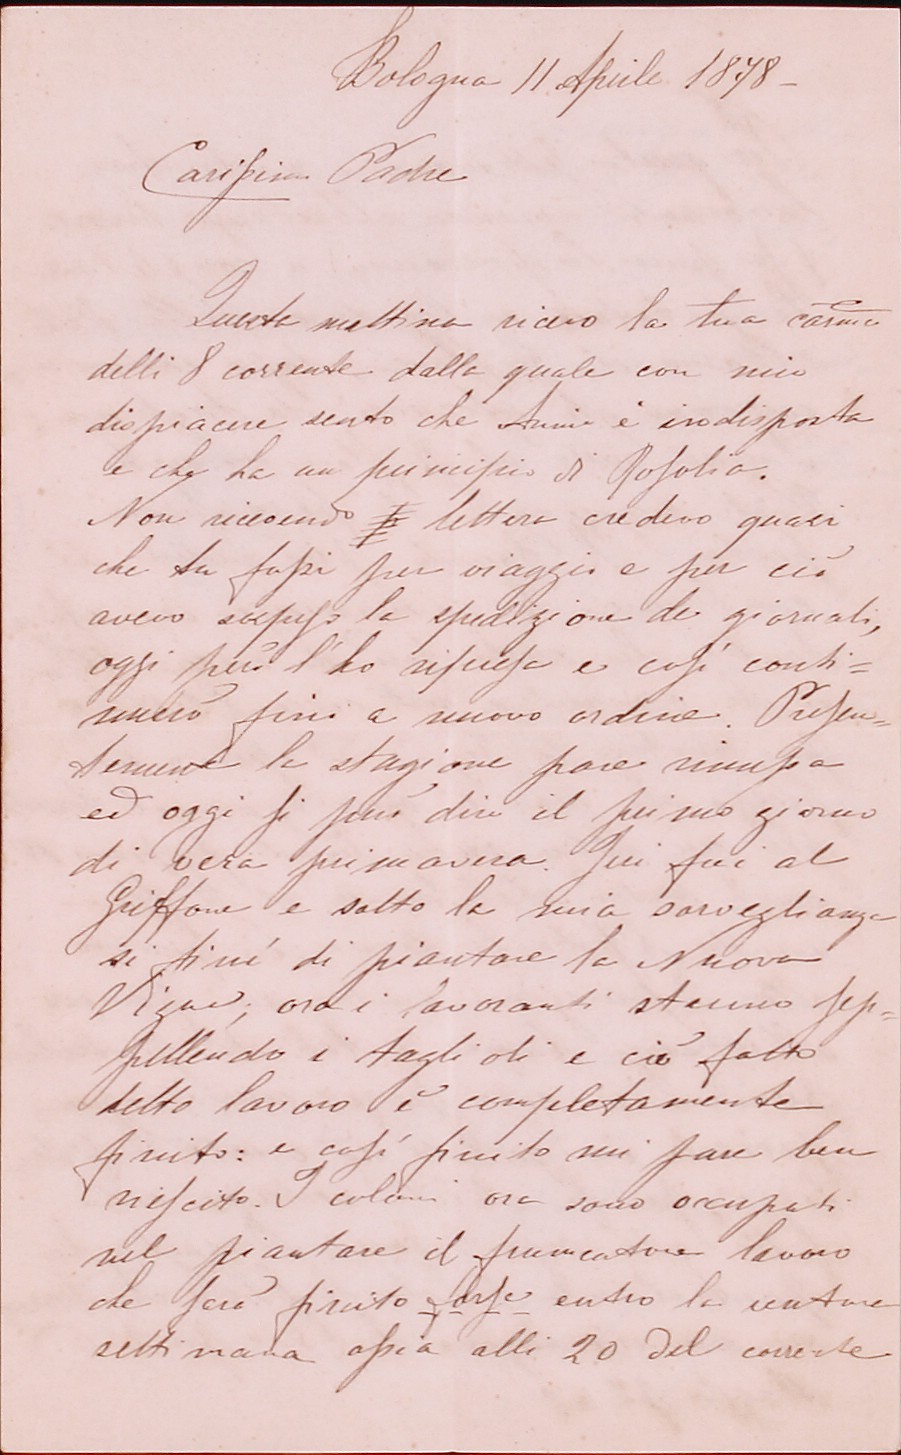 Bologna 11 Aprile 1878 -
Carissimo Padre
Questa mattina ricevo la tua carma
delli 8 corrente dalla quale con mio
dispiacere sento che Annie è indisposta
e che ha un principio di Rosolia.
Non ricevendo lettera credevo quasi
che tu fossi per viaggio e per ciò
avevo sospeso la spedizione de giornali,
oggi però l'ho ripresa e così conti=
nuerò fino a nuovo ordine. Presen=
temente la stagione pare rimessa
ed oggi si può dire il primo giorno
di vera primavera. Jeri fui al
Griffone e sotto la mia sorveglianza
si finì di piantare la Nuova
Vigna, ora i lavoranti stanno sep=
pellendo i taglioli e ciò fatto
detto lavoro è completamente
finito: e così finito mi pare ben
riescito. I coloni ora sono occupati
nel piantare il frumentone lavoro
che sarà finito forse entro la ventura
settimana ossia alli 20 del corrente